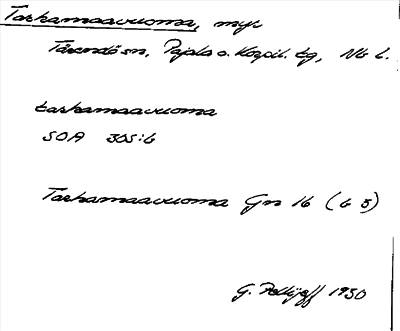 Taskamaavuoma, myr
Tärendö sn, Pajala o. Korpil. tg, Nb l.
taskamaavuoma
SOA 305:6
Taskamaavuoma Gn 16 (G 5)
G. Pellijeff 1950